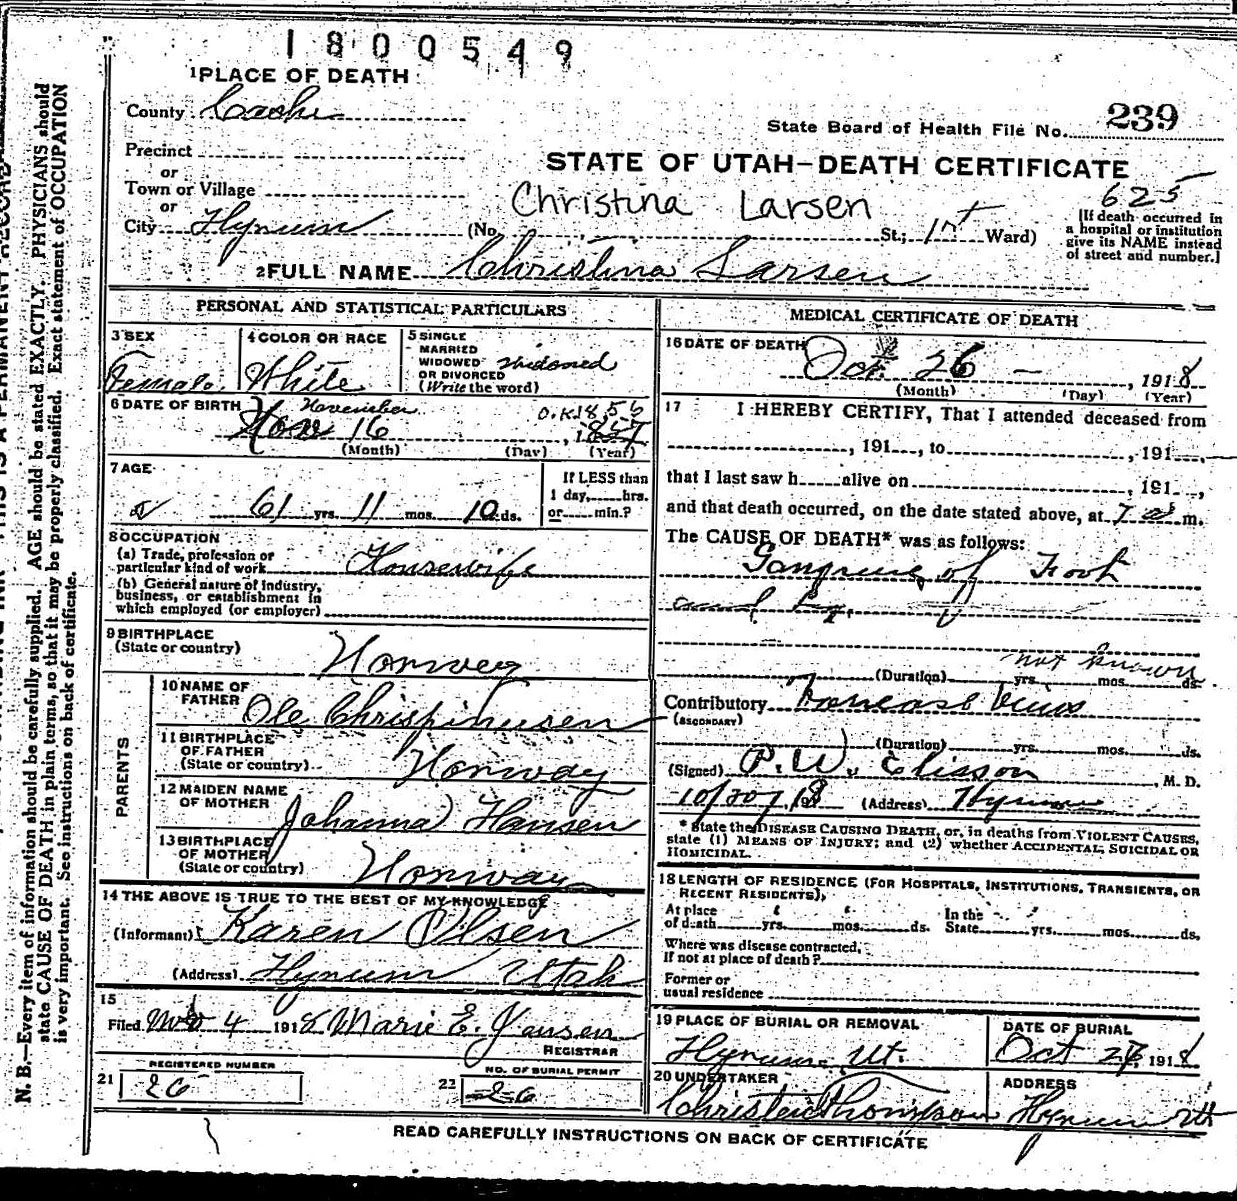 1800549
1 PLACE OF DEATH
County Cache
State Board of Health File No. 239
Precinct
or
STATE OF UTAH—DEATH CERTIFICATE
Town or Village
or
Christina Larsen
625
City Hyrum (No. St.; 1st Ward)
[If death occurred in
a hospital or institution
give its NAME instead
of street and number.]
2 FULL NAME Christina Larsen
PERSONAL AND STATISTICAL PARTICULARS
3 SEX
Female
4 COLOR OR RACE
White
5 SINGLE
MARRIED
WIDOWED
OR DIVORCED
(Write the word)
Widowed
6 DATE OF BIRTH
November O.K. 1856
Nov 16, 1857
(Month) (Day) (Year)
7 AGE
61 yrs. 11 mos. 10 ds.
If LESS than
1 day, hrs.
or min.?
8 OCCUPATION
(a) Trade, profession or
particular kind of work Housewife
(b) General nature of industry,
business, or establishment in
which employed (or employer)
9 BIRTHPLACE
(State or country) Norway
PARENTS
10 NAME OF
FATHER Ole
11 BIRTHPLACE
OF FATHER
(State or country) Norway
12 MAIDEN NAME
OF MOTHER Johanna Hansen
13 BIRTHPLACE
OF MOTHER
(State or country) Norway
14 THE ABOVE IS TRUE TO THE BEST OF MY KNOWLEDGE
(Informant) Karen Olsen
(Address) Hyrum Utah
15
Filed Nov 4 1918 Marie E. Jensen
REGISTRAR
REGISTERED NUMBER
21 26
NO. OF BURIAL PERMIT
22 26
MEDICAL CERTIFICATE OF DEATH
16 DATE OF DEATH
Oct 26 — , 1918
(Month) (Day) (Year)
17 I HEREBY CERTIFY, That I attended deceased from
, 191 , to , 191 ,
that I last saw h alive on , 191 ,
and that death occurred, on the date stated above, at 7 a m.
The CAUSE OF DEATH* was as follows:
Gangrene of Foot
and Leg
not known
(Duration) yrs. mos. ds.
Contributory Varicose Veins
(SECONDARY)
(Duration) yrs. mos. ds.
(Signed) P. W. Eliason, M. D.
10/30, 1918 (Address) Hyrum
* State the DISEASE CAUSING DEATH, or, in deaths from VIOLENT CAUSES,
state (1) MEANS OF INJURY; and (2) whether ACCIDENTAL, SUICIDAL OR
HOMICIDAL.
18 LENGTH OF RESIDENCE (FOR HOSPITALS, INSTITUTIONS, TRANSIENTS, OR
RECENT RESIDENTS),
At place In the
of death yrs. mos. ds. State yrs. mos. ds.
Where was disease contracted,
if not at place of death?
Former or
usual residence
19 PLACE OF BURIAL OR REMOVAL
Hyrum Ut.
DATE OF BURIAL
Oct 27, 1918
20 UNDERTAKER
Thompson
ADDRESS
Hyrum Ut
READ CAREFULLY INSTRUCTIONS ON BACK OF CERTIFICATE
N. B.—Every item of information should be carefully supplied. AGE should be stated EXACTLY. PHYSICIANS should
state CAUSE OF DEATH in plain terms, so that it may be properly classified. Exact statement of OCCUPATION
is very important. See instructions on back of certificate.